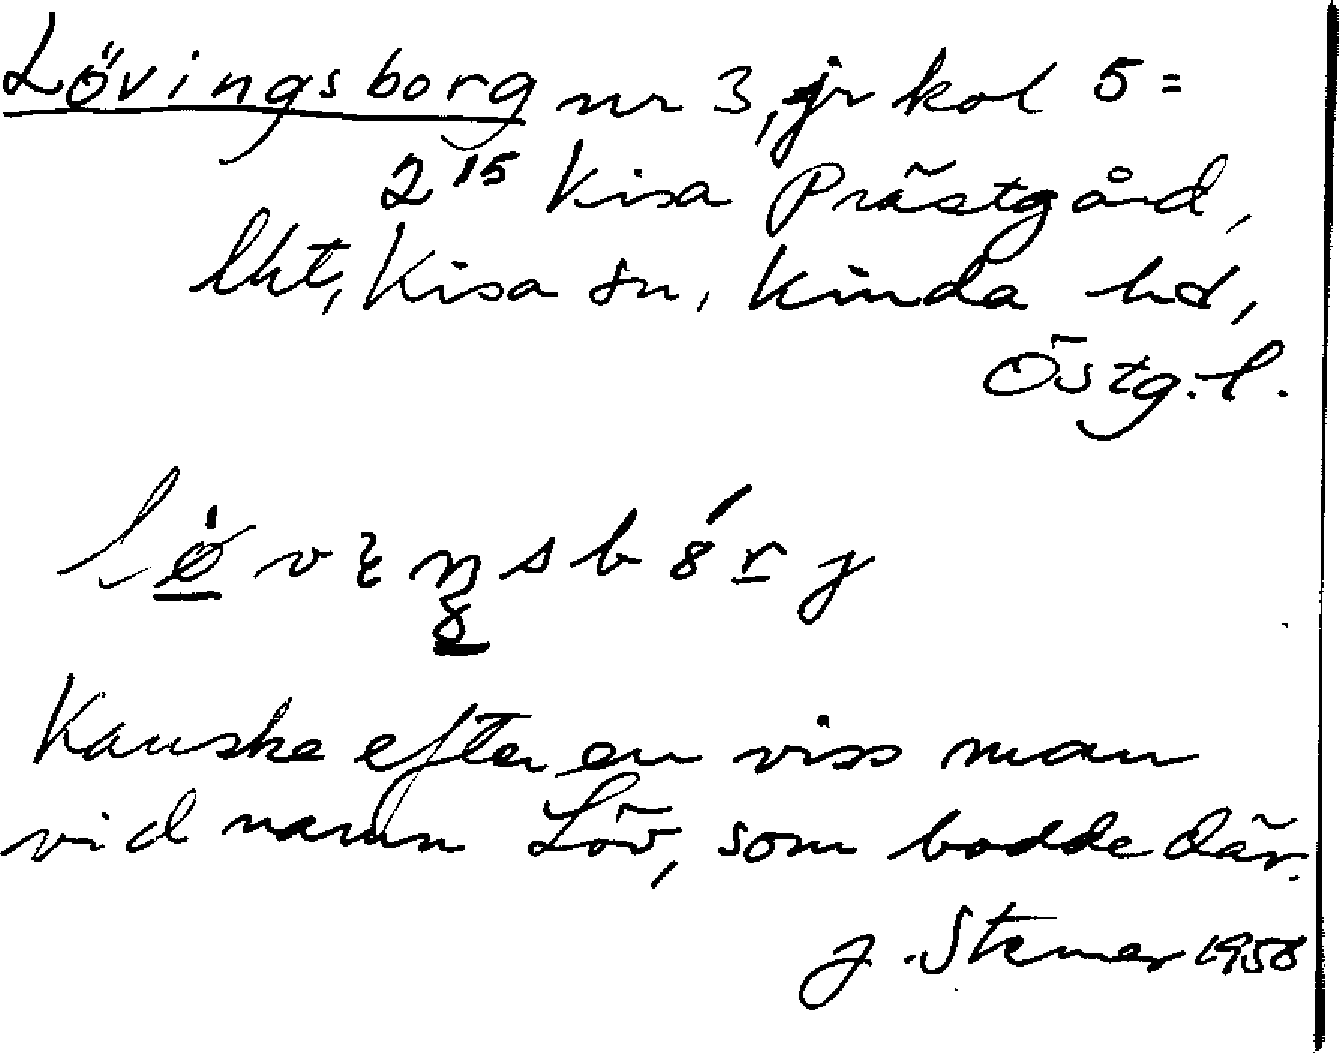 Lövingsborg nr 3, jr kol 5 =
2¹⁵ Kisa Prästgård,
lht, Kisa sn, Kinda hd,
Östg. l.
Kanske efter en viss man
vid namn Löv, som bodde där.
J. Stemer 1958